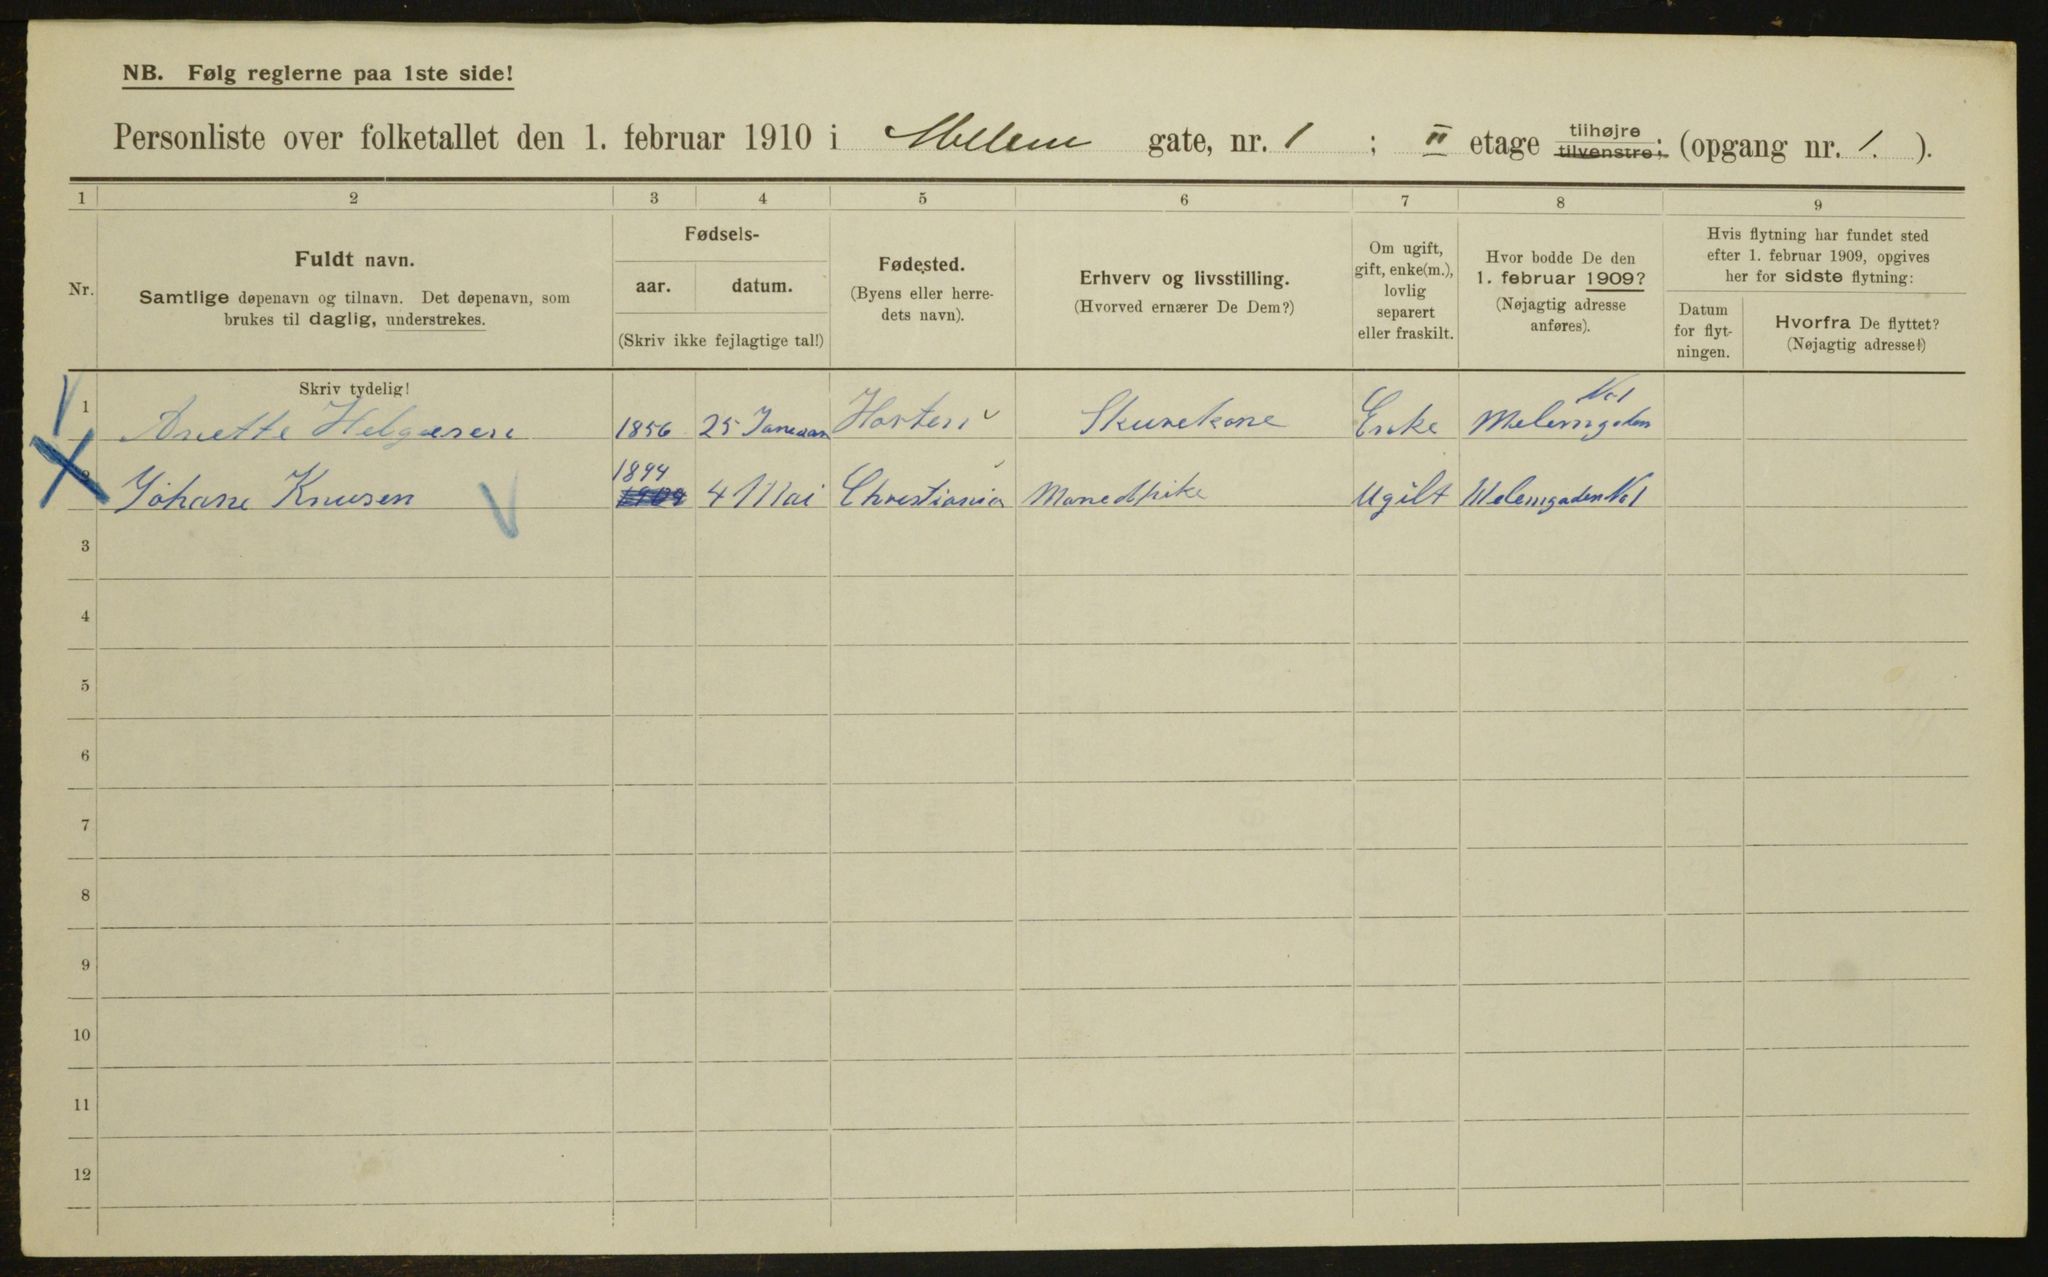 NB. Følg reglerne paa 1ste side!
Personliste over folketallet den 1. februar 1910 i Mellem gate, nr. 1 ; II etage tilhøjre tilvenstre; (opgang nr. 1. ).
1 2 3 4 5 6 7 8 9
Nr.
Fuldt navn.
Samtlige døpenavn og tilnavn. Det døpenavn, som
brukes til daglig, understrekes.
Fødsels-
aar. datum.
(Skriv ikke fejlagtige tal!)
Fødested.
(Byens eller herre-
dets navn).
Erhverv og livsstilling.
(Hvorved ernærer De Dem?)
Om ugift,
gift, enke(m.),
lovlig
separert
eller fraskilt.
Hvor bodde De den
1. februar 1909?
(Nøjagtig adresse
anføres).
Hvis flytning har fundet sted
efter 1. februar 1909, opgives
her for sidste flytning:
Datum
for flyt-
ningen.
Hvorfra De flyttet?
(Nøjagtig adresse!)
Skriv tydelig!
No 1
1 Anette Helgesen 1856 25 Januar Horten Skurekone Enke Melemgaden
1894
2 Johane Knusen 4 Mai Christiania Manedspike Ugilt Melemgaden No 1
3
4
5
6
7
8
9
10
11
12